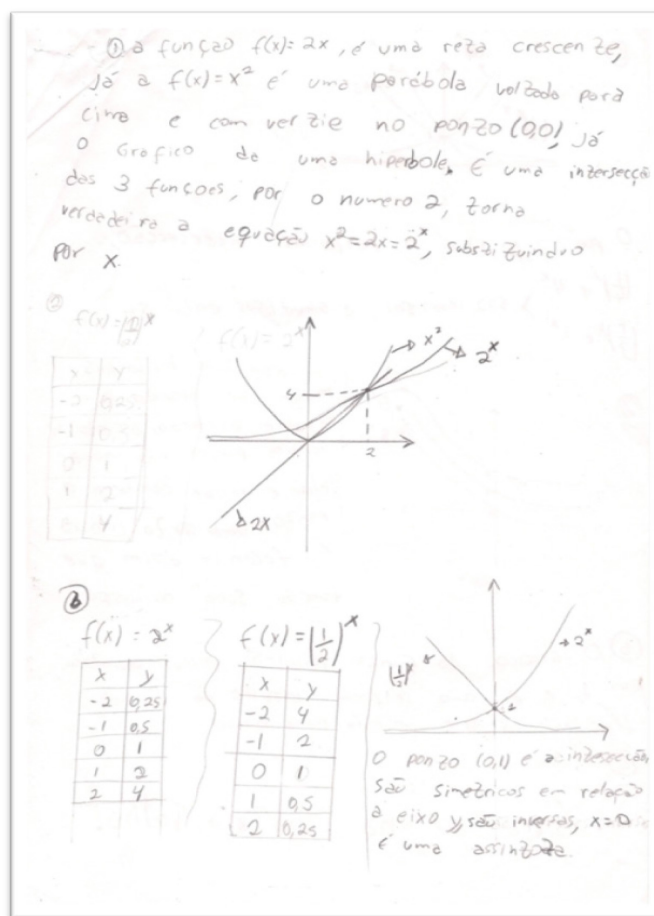 ① a função f(x)=2x, é uma reta crescente,
Já a f(x)=x² é uma parábola voltada para
cima e com vertie no ponto (0,0), já
o Grafico de uma hiperbole. É uma intersecção
das 3 funções, por o numero 2, torna
verdadeira a equação x²=2x=2ˣ, substituindo
por x.
f(x)= ˣ
f(x)=2ˣ
x y
-2 0,25
-1 0,5
0 1
1 2
4
x²
2ˣ
4
2
2x
②
f(x)=2ˣ
x y
-2 0,25
-1 0,5
0 1
1 2
2 4
f(x)=(1/2)ˣ
x y
-2 4
-1 2
0 1
1 0,5
2 0,25
(1/2)ˣ
2ˣ
1
O ponto (0,1) é a intersecção,
são simetricos em relação
a eixo y, são inversas, x=0
é uma assintota.